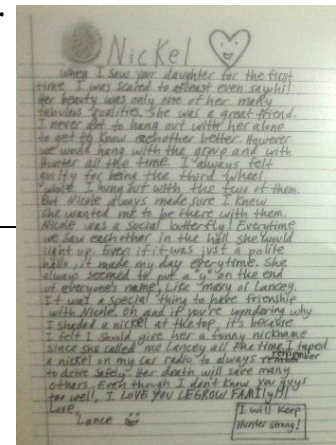 Nickel
When I saw your daughter for the first
time I was scared to atleast even say hi!
Her beauty was only one of her many
fabulous qualities. She was a great friend.
I never got to hang out with her alone
to get to know eachother better. However
we would hang with the group and with
Hunter all the time. I always felt
guilty for being the third wheel
while I hung out with the two of them.
But Nicole always made sure I knew
she wanted me to be there with them.
Nicole was a social butterfly! Everytime
we saw eachother in the hall she would
light up. Even if it was just a polite
hello, it made my day everytime. She
always seemed to put a "y" on the end
of everyone's name, Like mary or Lancey.
It was a special thing to have frienship
with Nicole. Oh and if you're wondering why
I shaded a nickel at the top, it's because
I felt I should give her a funny nickname
since she called me Lancey all the time. I taped
a nickel on my car radio to always remember
to drive safely. Her death will save many
others. Even though I don't know you guys
too well, I LOVE YOU LEGROW FAMILY!!
Love,
Lance
I will keep
Hunter strong!